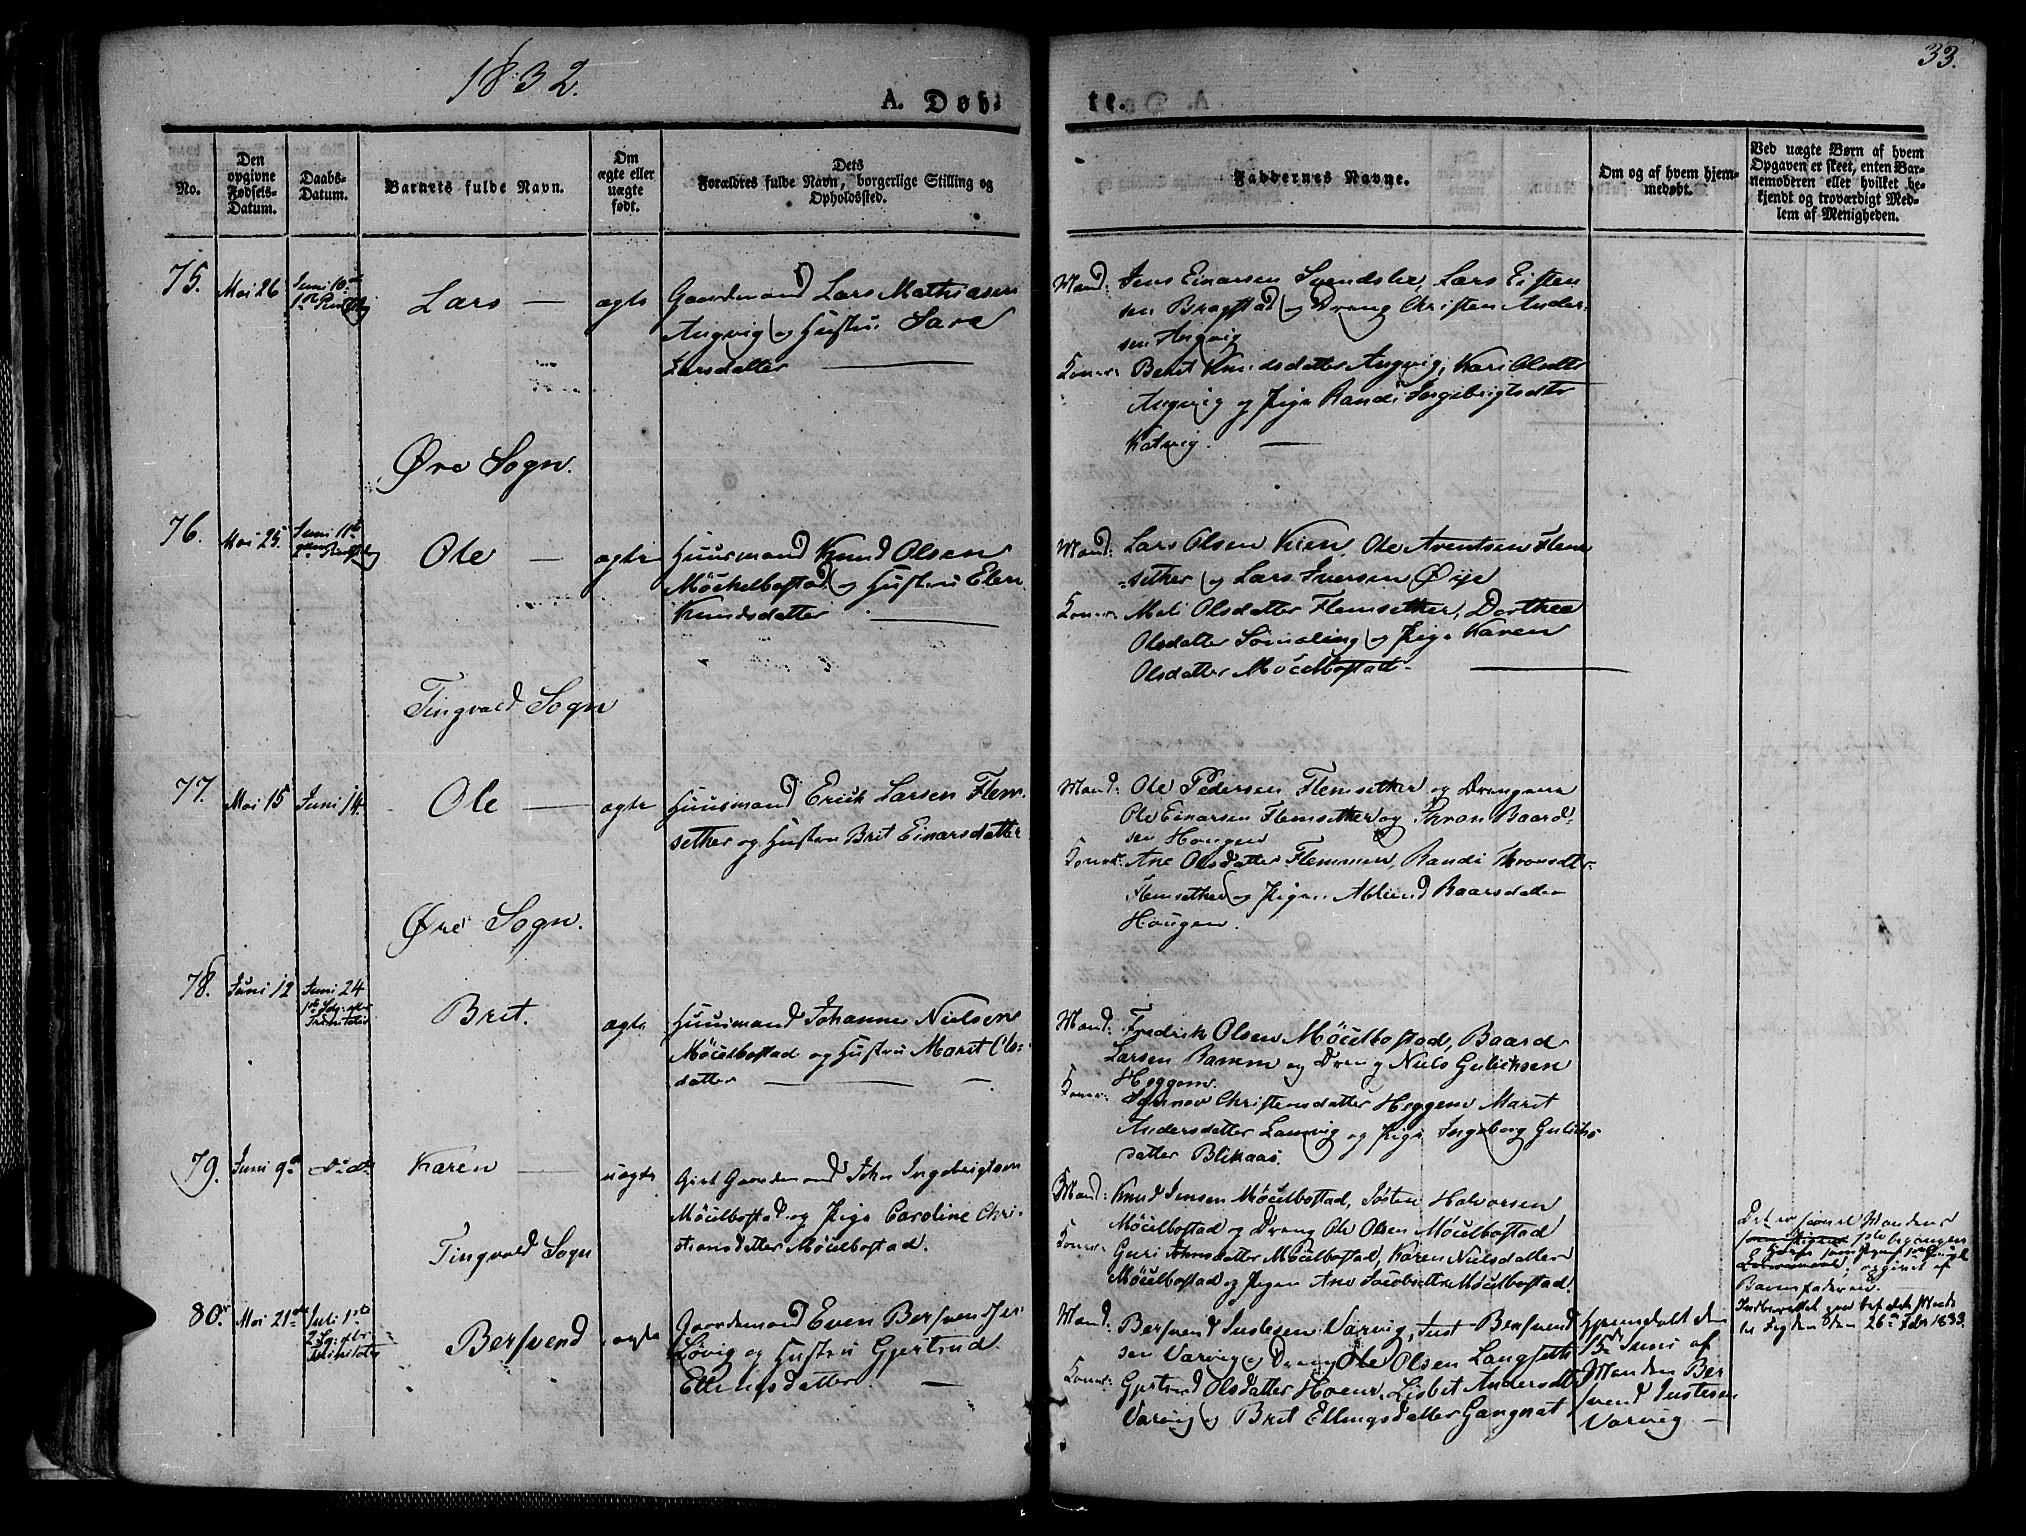 1832.
33.
A. Døb-
te.
No.
Den opgivne Fødsels-Datum.
Daabs-Datum.
Barnets fulde Navn.
Om ægte eller uægte født.
Dets Forældres fulde Navn, borgerlige Stilling og Opholdssted.
Faddernes Navne.
Om og af hvem hjem-medøbt.
Ved uægte Børn af hvem Opgaven er skeet, enten Bar-nemoderen eller hvilket be-kjendt og troværdigt Med-lem af Menigheden.
75. Mai 26 Juni 10de Lars — ægte Gaardmand Lars Mathiasen
Angvig og Hustru Sara
Larsdatter —
Mænd: Jens Einarsen Svendslie, Lars Eisten
sen Bragstad og Dreng Christen Ander-
sen Angvig
Koner: Berit Knudsdatter Angvig, Kari Olsdtr
Angvig og Pige Randi Ingebrigtsdtr
Katvig. —
Øre Sogn.
76. Mai 25. Juni 11te Ole — ægte Huusmand Knud Olsen
Möckelbostad og Hustru Elen
Knudsdatter —
Mænd: Lars Olsen Kien, Ole Arentsen Flem
sether og Lars Iversen Øije
Koner: Mali Olsdatter Flemsether, Dorthea
Olsdatter Sømeling og Pige Karen
Olsdatter Möcelbostad. —
Tingvold Sogn
77. Mai 15 Juni 14. Ole — ægte Huusmand Erick Larsen Flem-
sether og Hustru Brit Einarsdatter
Mænd: Ole Pedersen Flemsether og Drengene
Ole Einarsen Flemsether og Thron Baard-
sen Hougen
Koner: Ane Olsdatter Flemmen, Randi Thronsdtr
Flemsether og Pige Ahlend Baarsdatter
Hougen.
Øre Sogn.
78. Juni 12 Juni 24
1ste Sg. efter
Trinitatis
Brit. ægte Huusmand Johannes Nielsen
Möcelbostad og Hustru Marit Ols-
datter —
Mænd: Fredrik Olsen Möcelbostad, Baard
Larsen Ramm og Dreng Niels Gulichsen
Heggem.
Koner: Synnøv Christensdatter Heggem Marit
Andersdatter Lamvig og Pige Ingeborg Gulichs
datter Blikaas.
79. Juni 9de Do do Karen — uægte Gift Gaardmand John Ingebrigtsen
Möcelbostad og Pige Caroline Chri-
stiansdatter Möcelbostad.
Mænd: Knud Jensen Möcelbostad, Josten Halvorsen
Möcelbostad og Dreng Ole Olsen Möcelbostad
Koner: Guri Johnsdatter Möcelbostad, Karen Nielsdatter
Möcelbostad og Pigen Ane Jacobsdtr Möcelbostad.
Det er saavel Mandens
begangen
opgivet af
Barnefaderen.
den 26de Febr 1833.
Tingvold Sogn
80. Mai 21de Juli 1ste
2 Sg. eftr
Trinitatis
Bersvend ægte Gaardmand Even Bersvendsen
Løvig og Hustru Gjertrud
Ellingsdatter. —
Mænd: Bersvend Justesen Varvig, Just Bersvend
sen Varvig og Dreng Ole Olsen Langseth
Koner: Gjertrud Olsdatter Hoem, Lisbet Andersdtr
Varvig og Brit Ellingsdatter Gangnat
Hjemdøbt den
15de Juni af
Manden Ber
svend Justesen
Varvig —